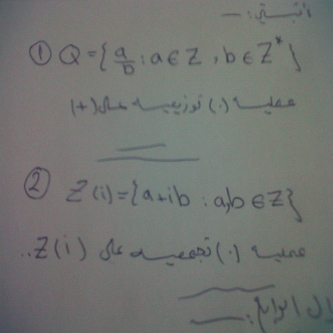 أثبتي :-
① Q = { a/b : a ∈ Z , b ∈ Z* }
عملية (.) توزيعية على (+)
② Z(i) = { a+ib : a,b ∈ Z }
عملية (.) تجميعية على Z(i) ..